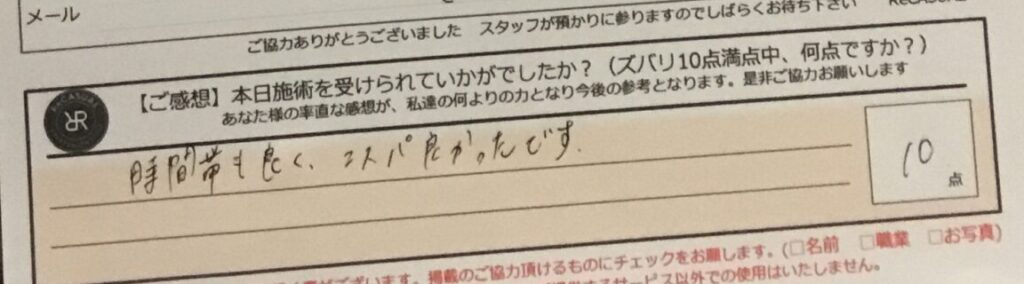 メール
ご協力ありがとうございました　スタッフが預かりに参りますのでしばらくお待ち下さい
【ご感想】本日施術を受けられていかがでしたか？（ズバリ10点満点中、何点ですか？）
あなた様の率直な感想が、私達の何よりの力となり今後の参考となります。是非ご協力お願いします
時間帯も良く、コスパ良かったです.
10
点
ございます。掲載のご協力頂けるものにチェックをお願します。(□名前　□職業　□お写真)
サービス以外での使用はいたしません。